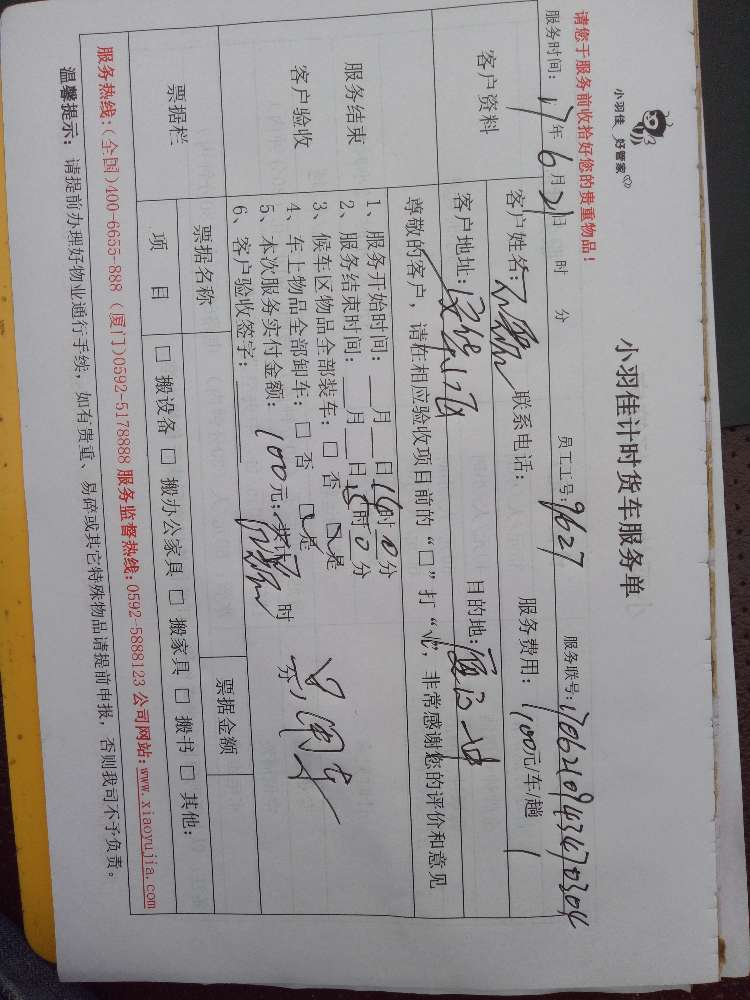 小羽佳 好管家
小羽佳计时货车服务单
请您于服务前收拾好您的贵重物品！
服务时间：17年6月21日 时 分 员工工号：9627 服务联号：1706210943470304
客户资料
客户姓名： 联系电话： 服务费用：100元/车/趟
客户地址： 目的地：
服务结束
客户验收
尊敬的客户，请在相应验收项目前的“□”打“√”，非常感谢您的评价和意见
1、服务开始时间：__月__日14时0分
2、服务结束时间：__月__日15时0分
3、候车区物品全部装车：□ 否 ☑是
4、车上物品全部卸车：□ 否 ☑是
5、本次服务实付金额：100元；共计 时 分，
6、客户验收签字：
票据栏
票据名称 票据金额
项 目 □ 搬设备 □ 搬办公家具 □ 搬家具 □ 搬书 □ 其他：
服务热线：（全国）400-6655-888（厦门）0592-5178888 服务监督热线：0592-5888123 公司网站：www.xiaoyujia.com
温馨提示：请提前办理好物业通行手续，如有贵重、易碎或其它特殊物品请提前申报，否则我司不予负责。